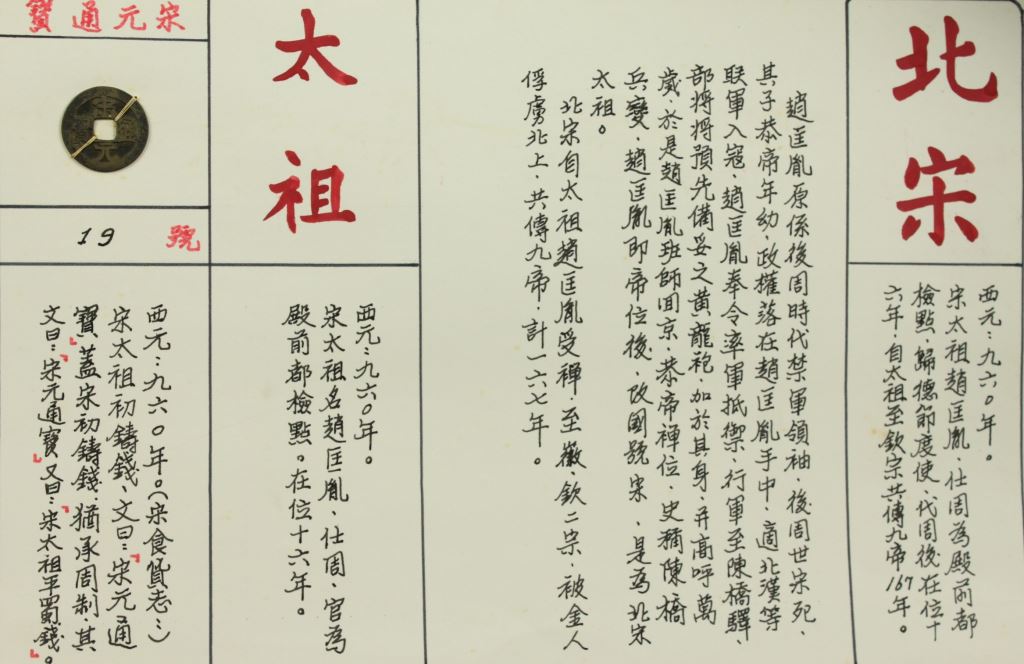 北宋
西元：九六〇年。
宋太祖趙匡胤，仕周為殿前都
檢點，歸德節度使，代周後在位十
六年，自太祖至欽宗共傳九帝167年。
趙匡胤原係後周時代禁軍領袖，後周世宋死，
其子恭帝年幼，政權落在趙匡胤手中，適北漢等
联軍入寇，趙匡胤奉令率軍抵禦，行軍至陳橋驛，
部將將預先備妥之黄龍袍，加於其身，并高呼萬
歲，於是趙匡胤班師回京，恭帝禅位，史稱陳橋
兵變，趙匡胤即帝位後，改國號宋，是為北宋
太祖。
北宋自太祖趙匡胤受禪，至徽，欽二宗，被金人
俘虜北上，共傳九帝，計一六七年。
太祖
西元：九六〇年。
宋太祖名趙匡胤，仕周，官為
殿前都檢點。在位十六年。
宋元通寶
宋元
19號
西元：九六〇年。（宋食貨志：）
宋太祖初鑄錢，文曰：「宋元通
寶」蓋宋初鑄錢，猶承周制，其
文曰：「宋元通寶」又曰：「宋太祖平蜀錢」。